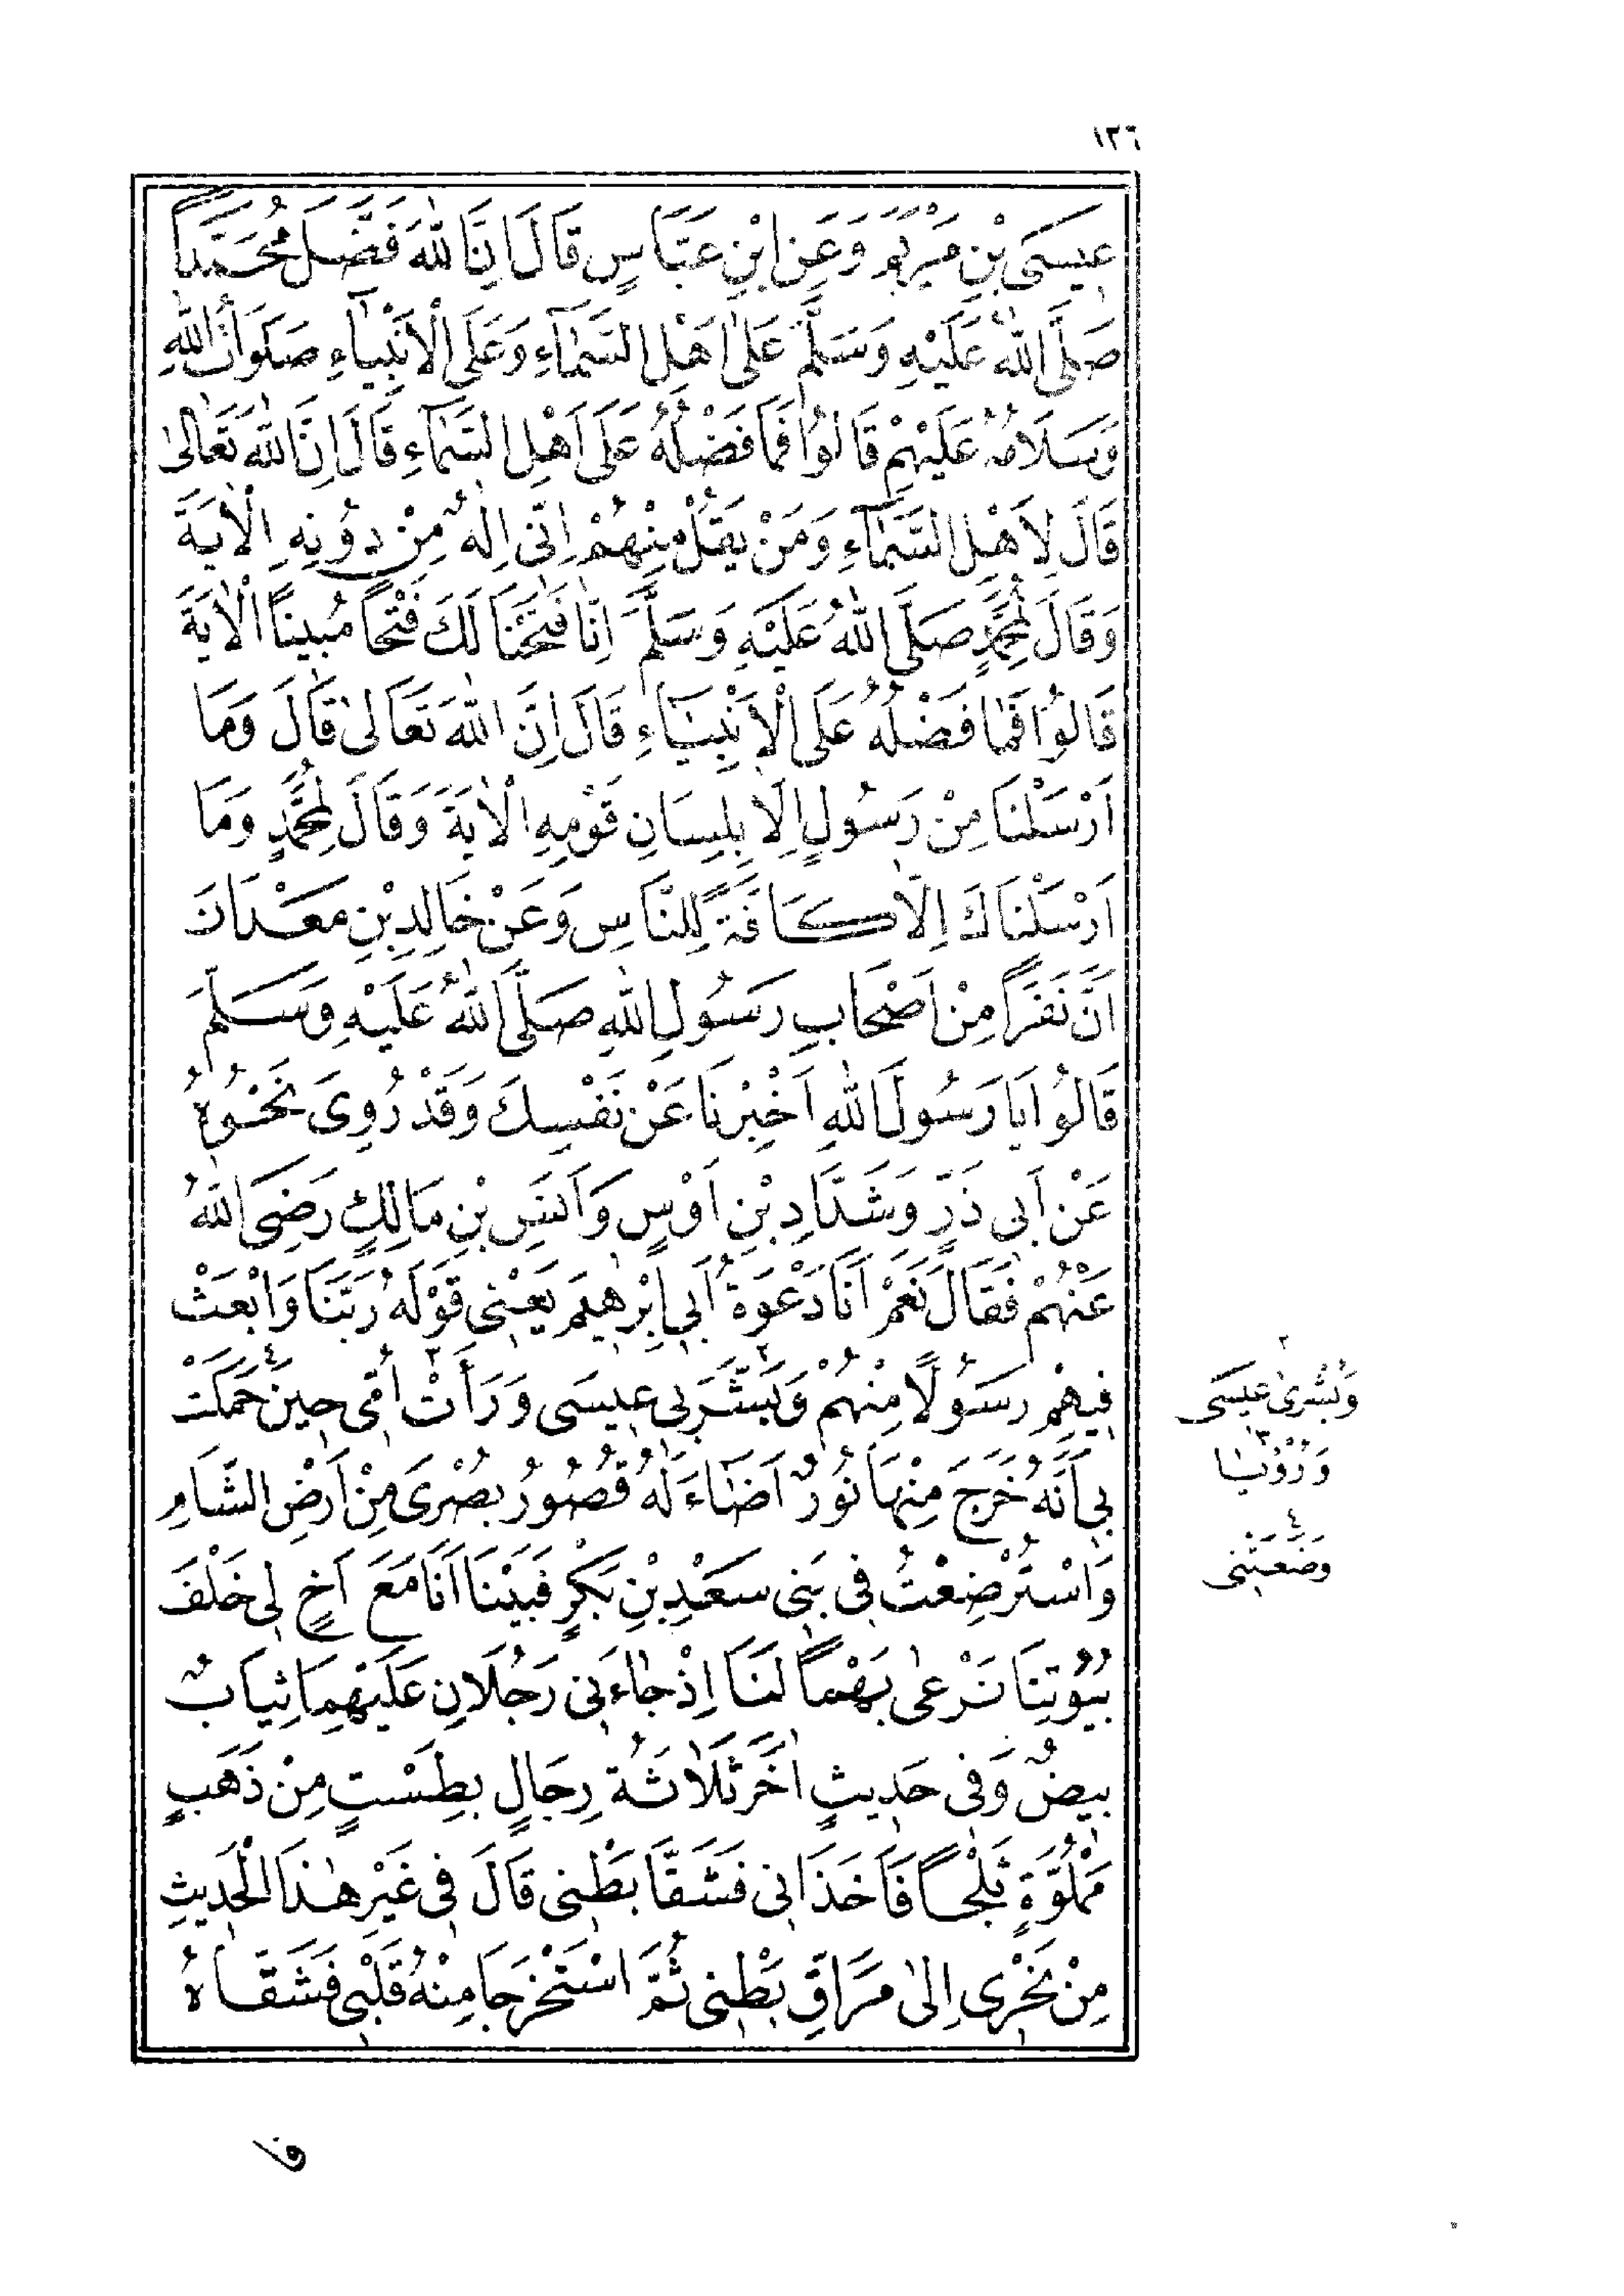 ١٣٦
عِيسَى بْنِ مَرْيَمَ وَعَنِ ابْنِ عَبَّاسٍ قَالَ اِنَّ اللّٰهَ فَضَّلَ مُحَمَّدًا
صَلَّى اللّٰهُ عَلَيْهِ وَسَلَّمَ عَلٰى اَهْلِ السَّمَآءِ وَعَلَى الْاَنْبِيَآءِ صَلَوَاتُ اللّٰهِ
وَسَلَامُهُ عَلَيْهِمْ قَالُوا فَمَا فَضْلُهُ عَلَى اَهْلِ السَّمَآءِ قَالَ اِنَّ اللّٰهَ تَعَالٰى
قَالَ لِاَهْلِ السَّمَآءِ وَمَنْ يَقُلْ مِنْهُمْ اِنِّى اِلٰهٌ مِنْ دُونِهِ الْاٰيَةَ
وَقَالَ لِمُحَمَّدٍ صَلَّى اللّٰهُ عَلَيْهِ وَسَلَّمَ اِنَّا فَتَحْنَا لَكَ فَتْحًا مُبِينًا الْاٰيَةَ
قَالُوا فَمَا فَضْلُهُ عَلَى الْاَنْبِيَآءِ قَالَ اِنَّ اللّٰهَ تَعَالٰى قَالَ وَمَا
اَرْسَلْنَا مِنْ رَسُولٍ اِلَّا بِلِسَانِ قَوْمِهِ الْاٰيَةَ وَقَالَ لِمُحَمَّدٍ وَمَا
اَرْسَلْنَاكَ اِلَّا كَافَّةً لِلنَّاسِ وَعَنْ خَالِدِ بْنِ مَعْدَانَ
اَنَّ نَفَرًا مِنْ اَصْحَابِ رَسُولِ اللّٰهِ صَلَّى اللّٰهُ عَلَيْهِ وَسَلَّمَ
قَالُوا يَا رَسُولَ اللّٰهِ اَخْبِرْنَا عَنْ نَفْسِكَ وَقَدْ رُوِىَ نَحْوُهُ
عَنْ اَبِى ذَرٍّ وَشَدَّادِ بْنِ اَوْسٍ وَاَنَسِ بْنِ مَالِكٍ رَضِىَ اللّٰهُ
عَنْهُمْ فَقَالَ نَعَمْ اَنَا دَعْوَةُ اَبِى اِبْرٰهِيمَ يَعْنِى قَوْلَهُ رَبَّنَا وَابْعَثْ
فِيهِمْ رَسُولًا مِنْهُمْ ٢ وَبَشَّرَ بِى عِيسَى ٣ وَرَأَتْ اُمِّى حِينَ ٤ حَمَلَتْ
بِى اَنَّهُ خَرَجَ مِنْهَا نُورٌ اَضَاءَ لَهُ قُصُورُ بُصْرَى مِنْ اَرْضِ الشَّامِ
وَاسْتُرْضِعْتُ فِى بَنِى سَعْدِ بْنِ بَكْرٍ فَبَيْنَا اَنَا مَعَ اَخٍ لِى خَلْفَ
بُيُوتِنَا نَرْعٰى بَهْمًا لَنَا اِذْ جَاءَنِى رَجُلَانِ عَلَيْهِمَا ثِيَابٌ
بِيضٌ وَفِى حَدِيثٍ اٰخَرَ ثَلَاثَةُ رِجَالٍ بِطِسْتٍ مِنْ ذَهَبٍ
مَمْلُوَّةٍ ثَلْجًا فَاَخَذَانِى فَشَقَّا بَطْنِى قَالَ فِى غَيْرِ هٰذَا الْحَدِيثِ
مِنْ نَحْرِى اِلٰى مَرَاقِّ بَطْنِى ثُمَّ اسْتَخْرَجَا مِنْهُ قَلْبِى فَشَقَّاهُ
٢
وَبُشْرٰى عِيسَى
٣
وَرُؤْيَا
٤
وَضَعَتْنِى
فا